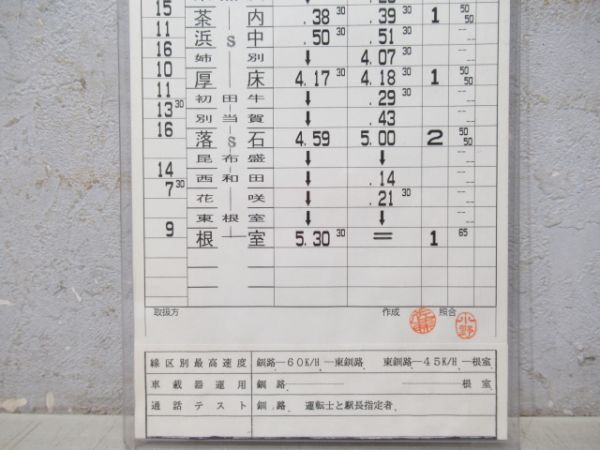 15 茶 内 .38 30 .39 30 1 50 50
11 浜 S 中 .50 30 .51
16 姉 別 ↓ 4.07
10 厚 床 4.17 30 4.18 30 1 50 50
11 初 田 牛 ↓ .29 30
13 30 別 当 賀 ↓ .43
16 落 S 石 4.59 5.00 2 50 50
昆 布 盛 ↓ ↓
14 西 和 田 ↓ .14
7 30 花 咲 ↓ .21 30
東 根 室 ↓ ↓
9 根 室 5.30 30 = 1 65
取扱方 作成 照合 小野
線区別最高速度 釧路―60K/H―東釧路 東釧路―45K/H―根室
車載器運用 釧路 ―― ―― 根室
通話テスト 釧路. 運転士と駅長指定者.